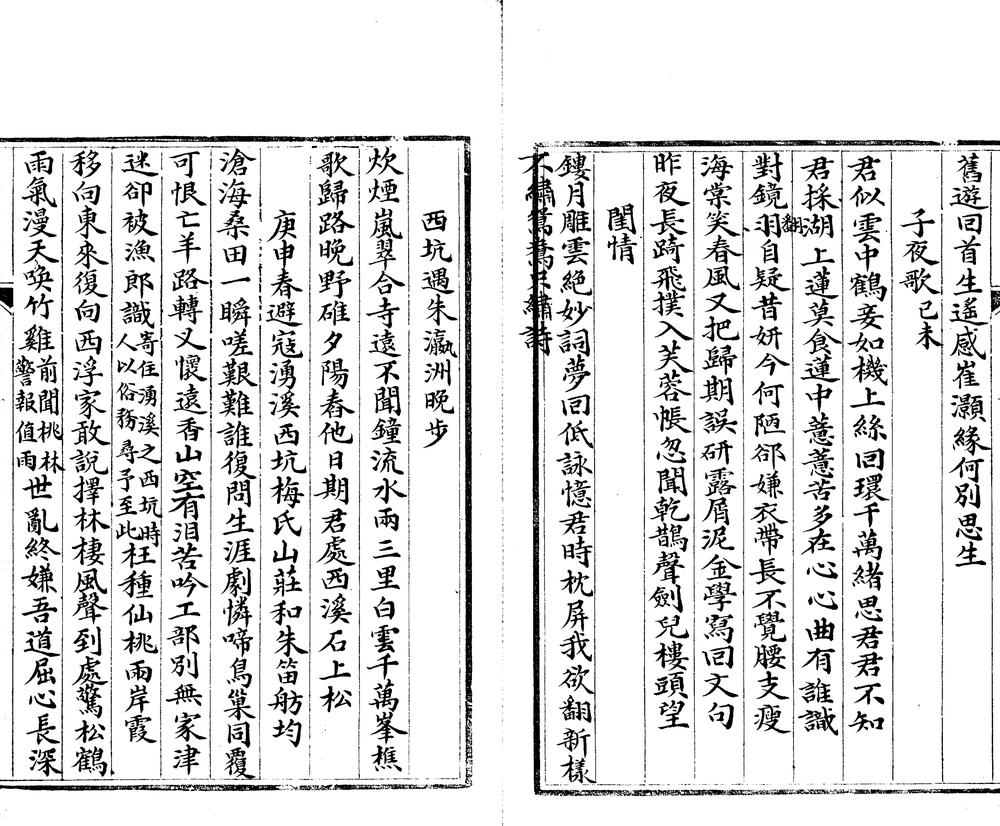 舊遊回首生遙感崔灝緣何別思生
子夜歌己未
君似雲中鶴妾如機上絲回環千萬緒思君君不知
君採湖上蓮莫食蓮中薏薏苦多在心心曲有誰識
對鏡翻自疑昔妍今何陋郤嫌衣帶長不覺腰支瘦
海棠笑春風又把歸期誤研露屑泥金學寫回文句
昨夜長踦飛撲入芙蓉帳忽聞乾鵲聲劍兒樓頭望
閨情
鏤月雕雲絕妙詞夢回低詠憶君時枕屏我欲翻新樣
不繡鴛鴦只繡詩
西坑遇朱瀛洲晚步
炊煙嵐翠合寺遠不聞鐘流水兩三里白雲千萬峯樵
歌歸路晚野碓夕陽舂他日期君處西溪石上松
庚申春避寇湧溪西坑梅氏山莊和朱笛舫均
滄海桑田一瞬嗟艱難誰復問生涯劇憐啼鳥巢同覆
可恨亡羊路轉义懷遠香山空有淚苦吟工部別無家津
迷卻被漁郎識寄住湧溪之西坑時人以俗務尋予至此枉種仙桃兩岸霞
移向東來復向西浮家敢說擇林棲風聲到處驚松鶴
雨氣漫天喚竹雞前聞桃林警報值雨世亂終嫌吾道屈心長深